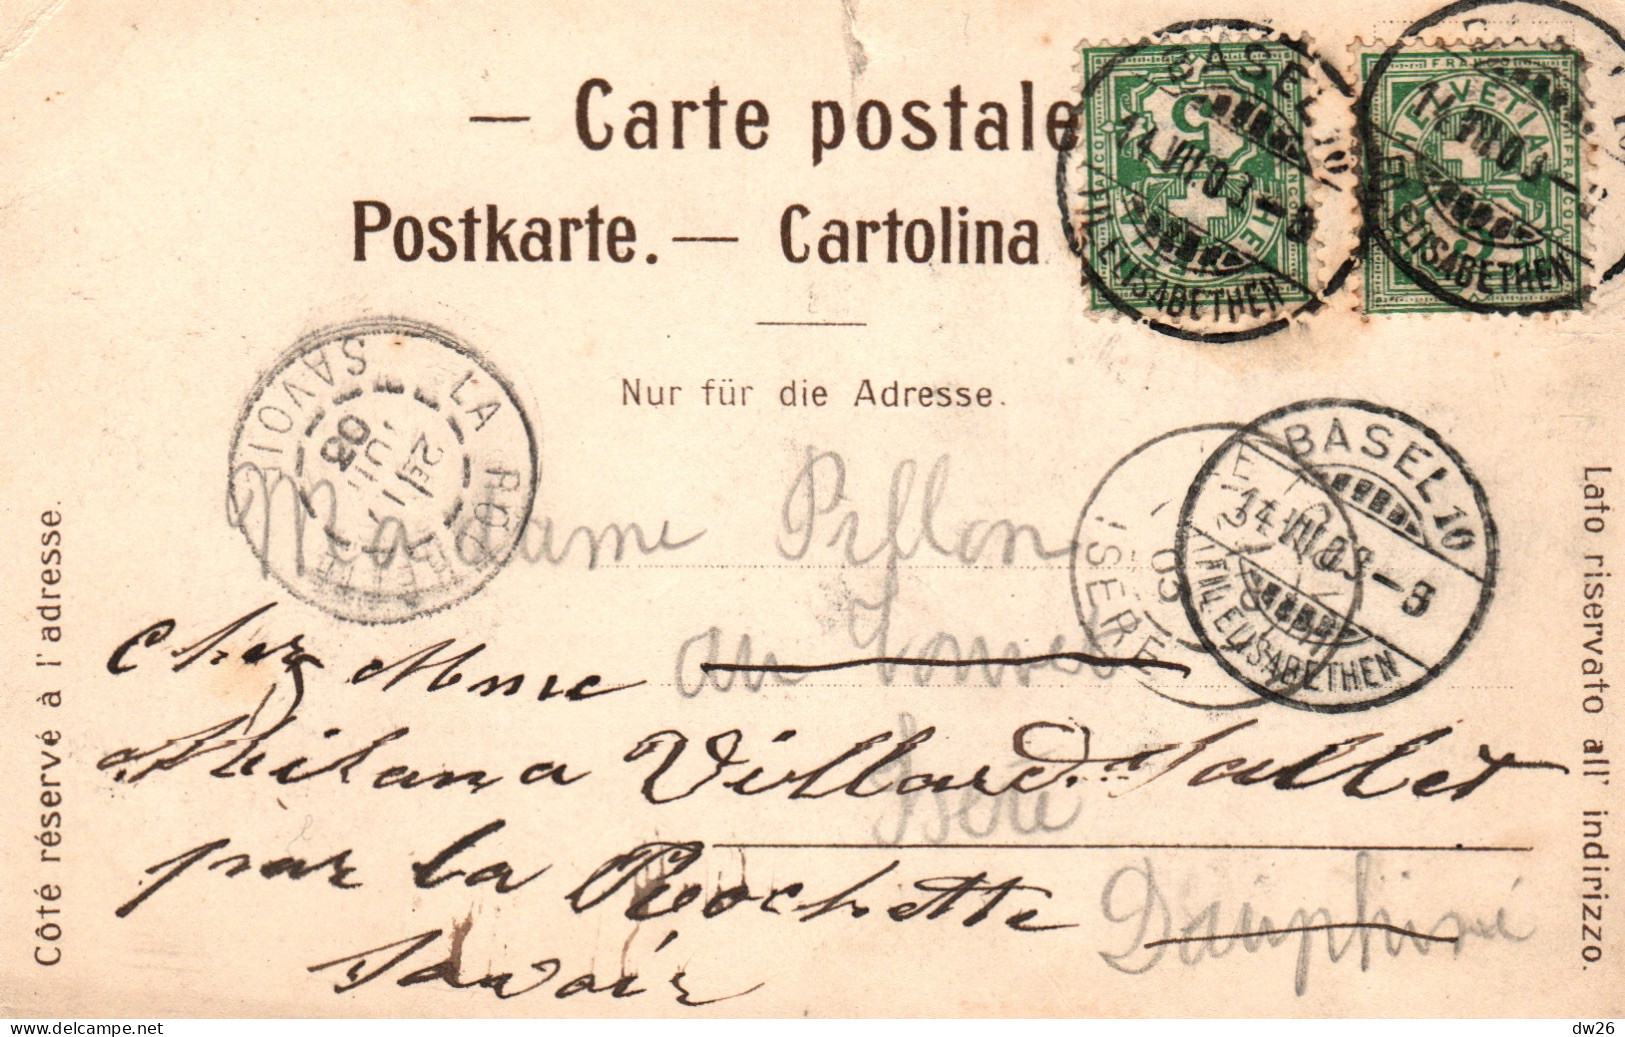 — Carte postale
Postkarte. — Cartolina
Nur für die Adresse.
Côté réservé à l'adresse.
Lato riservato all' indirizzo.
BASEL 10
14.VII.03–8
FIL. ELISABETHEN
FRANCO
HELVETIA
5
BASEL 10
ELISABETHEN
LA ROCHETTE
SAVOIE
03
BASEL 10
14.VII.03–8
FIL. ELISABETHEN
ISERE
03
Madame Pillon
au
Isère
Dauphiné
Chez Mme
Milana Villard-Sallet
par la Rochette
Savoie
dw26
https://www.delcampe.net